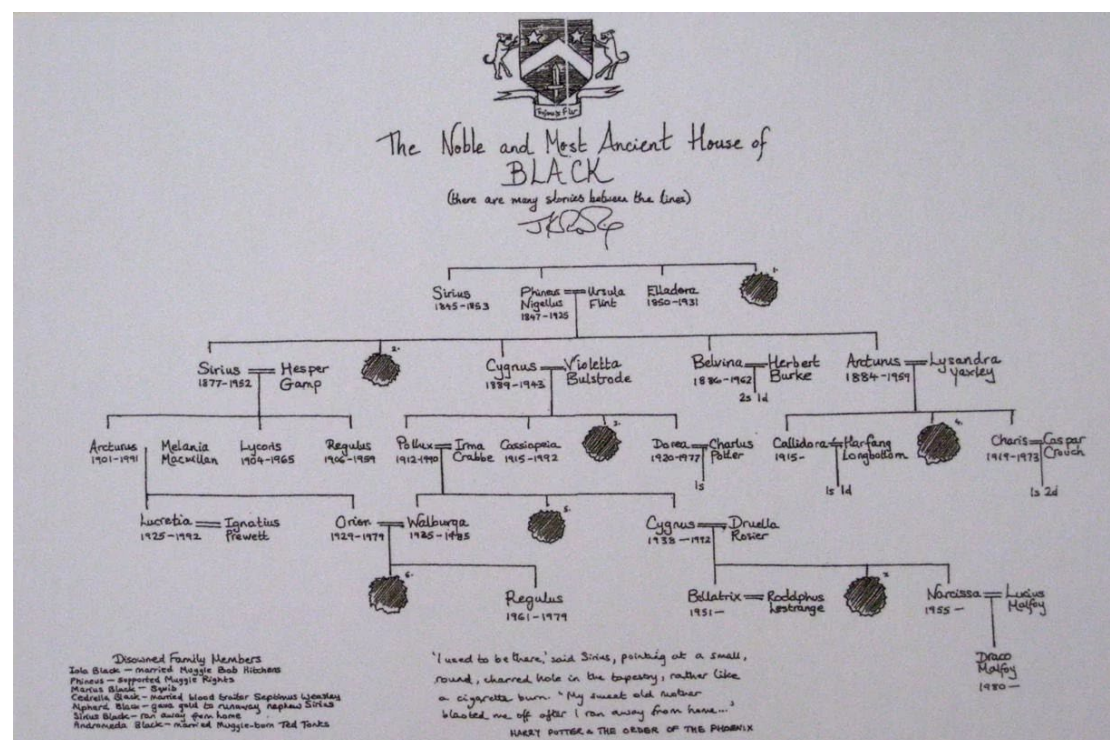 The Noble and Most Ancient House of
BLACK
(there are many stories between the lines)
1.
Sirius
1845-1853
Phineus
Nigellus
1847-1925
Ursula
Flint
Elladora
1850-1931
Sirius
1877-1952
Hesper
Gamp
2.
Cygnus
1889-1943
Violetta
Bulstrode
Belvina
1886-1962
Herbert
Burke
2s 1d
Arcturus
1884-1959
Lysandra
Yaxley
Arcturus
1901-1991
Melania
Macmillan
Lycoris
1904-1965
Regulus
1906-1959
Pollux
1912-1990
Irma
Crabbe
Cassiopeia
1915-1992
3.
Dorea
1920-1977
Charlus
Potter
1s
Callidora
1915-
Harfang
Longbottom
1s 1d
4.
Charis
1919-1973
Caspar
Crouch
1s 2d
Lucretia
1925-1992
Ignatius
Prewett
Orion
1929-1979
Walburga
1925-1985
5.
Cygnus
1938-1992
Druella
Rosier
6.
Regulus
1961-1979
Bellatrix
1951-
Rodolphus
Lestrange
7.
Narcissa
1955-
Lucius
Malfoy
Draco
Malfoy
1980-
Disowned Family Members
Isla Black - married Muggle Bob Hitchens
Phineus - supported Muggle Rights
Marius Black - Squib
Cedrella Black - married blood traitor Septimus Weasley
Alphard Black - gave gold to runaway nephew Sirius
Sirius Black - ran away from home
Andromeda Black - married Muggle-born Ted Tonks
'I used to be there,' said Sirius, pointing at a small,
round, charred hole in the tapestry, rather like
a cigarette burn. "My sweet old mother
blasted me off after I ran away from home...'
HARRY POTTER & THE ORDER OF THE PHOENIX